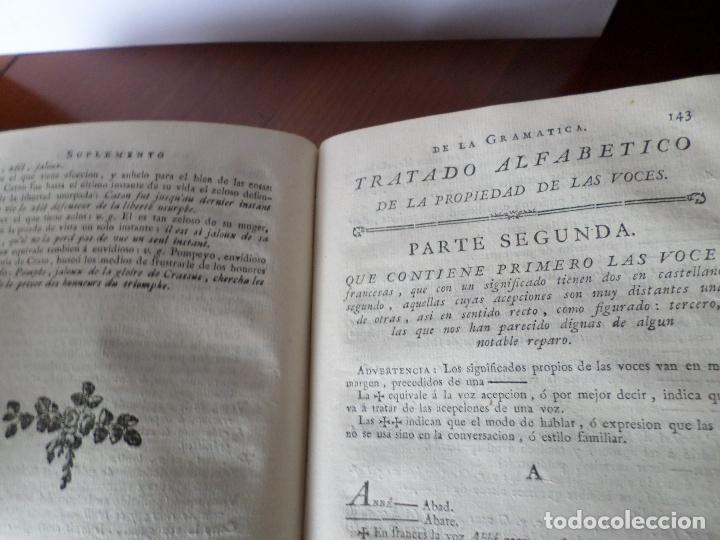 SUPLEMENTO
zélé, jaloux.
que tiene afeccion, y anhelo para el bien de las cosas:
Caton fue hasta el último instante de su vida el zeloso defen-
libertad usurpada. Caton fut jusqu'au dernier instant
vie le zélé défenseur de la liberté usurpée.
el que tiene zelos: v. g. El es tan zeloso de su muger,
pierda de vista un solo instante: il est si jaloux de sa
qu'il ne la perd pas de vue un seul instant.
equivale tambien á envidioso: v. g. Pompeyo, envidioso
de Craso, buscó los medios de frustrarle de los honores
Pompée, jaloux de la gloire de Crassus, chercha les
le priver des honneurs du triomphe.
DE LA GRAMATICA. 143
TRATADO ALFABETICO
DE LA PROPIEDAD DE LAS VOCES.
PARTE SEGUNDA.
QUE CONTIENE PRIMERO LAS VOCES
francesas, que con un significado tienen dos en castellano
segundo, aquellas cuyas acepciones son muy distantes una
de otras, asi en sentido recto, como figurado: tercero,
las que nos han parecido dignas de algun
notable reparo.
ADVERTENCIA: Los significados propios de las voces van en
margen, precedidos de una ——
La ✠ equivale á la voz acepcion, ó por mejor decir, indica que
va á tratar de las acepciones de una voz.
Las ✠✠ indican que el modo de hablar, ó expresion que las
no se usa sino en la conversacion, ó estilo familiar.
A
ABBÉ —— Abad.
—— Abate.
✠ En frances la voz Abbé
todocoleccion.net